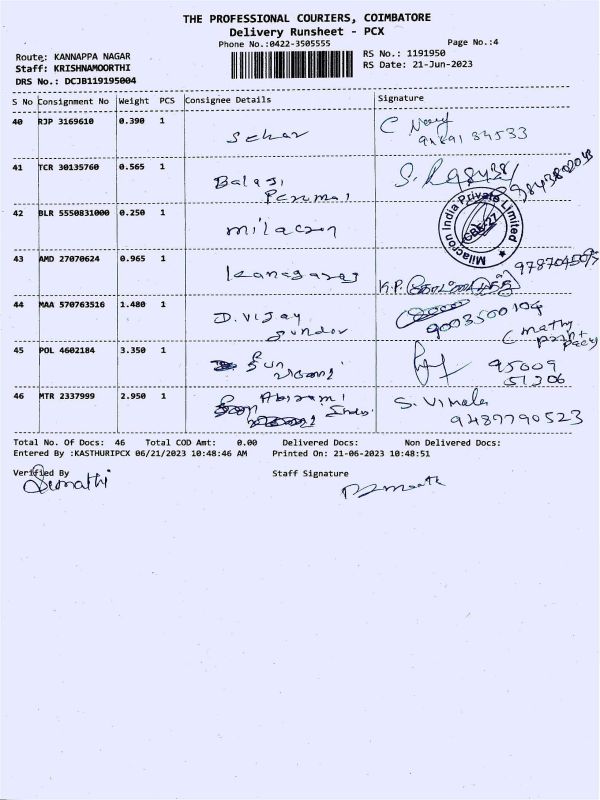 THE PROFESSIONAL COURIERS, COIMBATORE
Delivery Runsheet - PCX
Phone No.:0422-3505555
Page No.:4
Route: KANNAPPA NAGAR
RS No.: 1191950
Staff: KRISHNAMOORTHI
RS Date: 21-Jun-2023
DRS No.: DCJB119195004
S No Consignment No Weight PCS Consignee Details Signature
40 RJP 3169610 0.390 1
Sekar
41 TCR 30135760 0.565 1
Balaji
Perumal
9843802048
42 BLR 5550831000 0.250 1
milacron
Milacron India Private Limited
CBE-27
43 AMD 27070624 0.965 1
Kanagaraj
K.P.
9787045095
44 MAA 570763516 1.480 1
D. Vijay
Sundar
9003500104
45 POL 4602184 3.350 1
Sun
95009
51306
46 MTR 2337999 2.950 1
Abirami
S. Vimala
9489790523
Total No. Of Docs: 46 Total COD Amt: 0.00 Delivered Docs: Non Delivered Docs:
Entered By :KASTHURIPCX 06/21/2023 10:48:46 AM Printed On: 21-06-2023 10:48:51
Verified By
Staff Signature